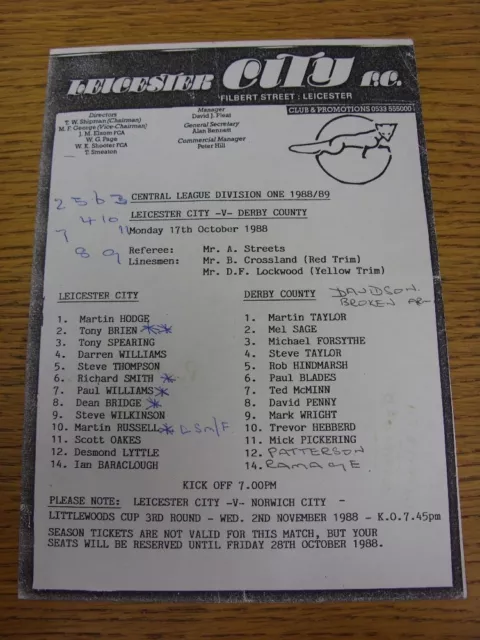 LEICESTER CITY F.C.
FILBERT STREET : LEICESTER
Directors
T. W. Shipman (Chairman)
M. F. George (Vice-Chairman)
J. M. Elsom FCA
W. G. Page
W. K. Shooter FCA
T. Smeaton
Manager
David J. Pleat
General Secretary
Alan Bennett
Commercial Manager
Peter Hill
CLUB & PROMOTIONS 0533 555000
2 5 6 3
4 10
7 11
8 9
CENTRAL LEAGUE DIVISION ONE 1988/89
LEICESTER CITY -V- DERBY COUNTY
Monday 17th October 1988
Referee: Mr. A. Streets
Linesmen: Mr. B. Crossland (Red Trim)
Mr. D.F. Lockwood (Yellow Trim)
LEICESTER CITY
1. Martin HODGE
2. Tony BRIEN **
3. Tony SPEARING
4. Darren WILLIAMS
5. Steve THOMPSON
6. Richard SMITH *
7. Paul WILLIAMS *
8. Dean BRIDGE *
9. Steve WILKINSON
10. Martin RUSSELL *
11. Scott OAKES
12. Desmond LYTTLE
14. Ian BARACLOUGH
DERBY COUNTY DAVIDSON
BROKEN
1. Martin TAYLOR
2. Mel SAGE
3. Michael FORSYTHE
4. Steve TAYLOR
5. Rob HINDMARSH
6. Paul BLADES
7. Ted McMINN
8. David PENNY
9. Mark WRIGHT
10. Trevor HEBBERD
11. Mick PICKERING
12. PATTERSON
14. RAMAGE
KICK OFF 7.00PM
PLEASE NOTE: LEICESTER CITY -V- NORWICH CITY -
LITTLEWOODS CUP 3RD ROUND - WED. 2ND NOVEMBER 1988 - K.O.7.45pm
SEASON TICKETS ARE NOT VALID FOR THIS MATCH, BUT YOUR
SEATS WILL BE RESERVED UNTIL FRIDAY 28TH OCTOBER 1988.